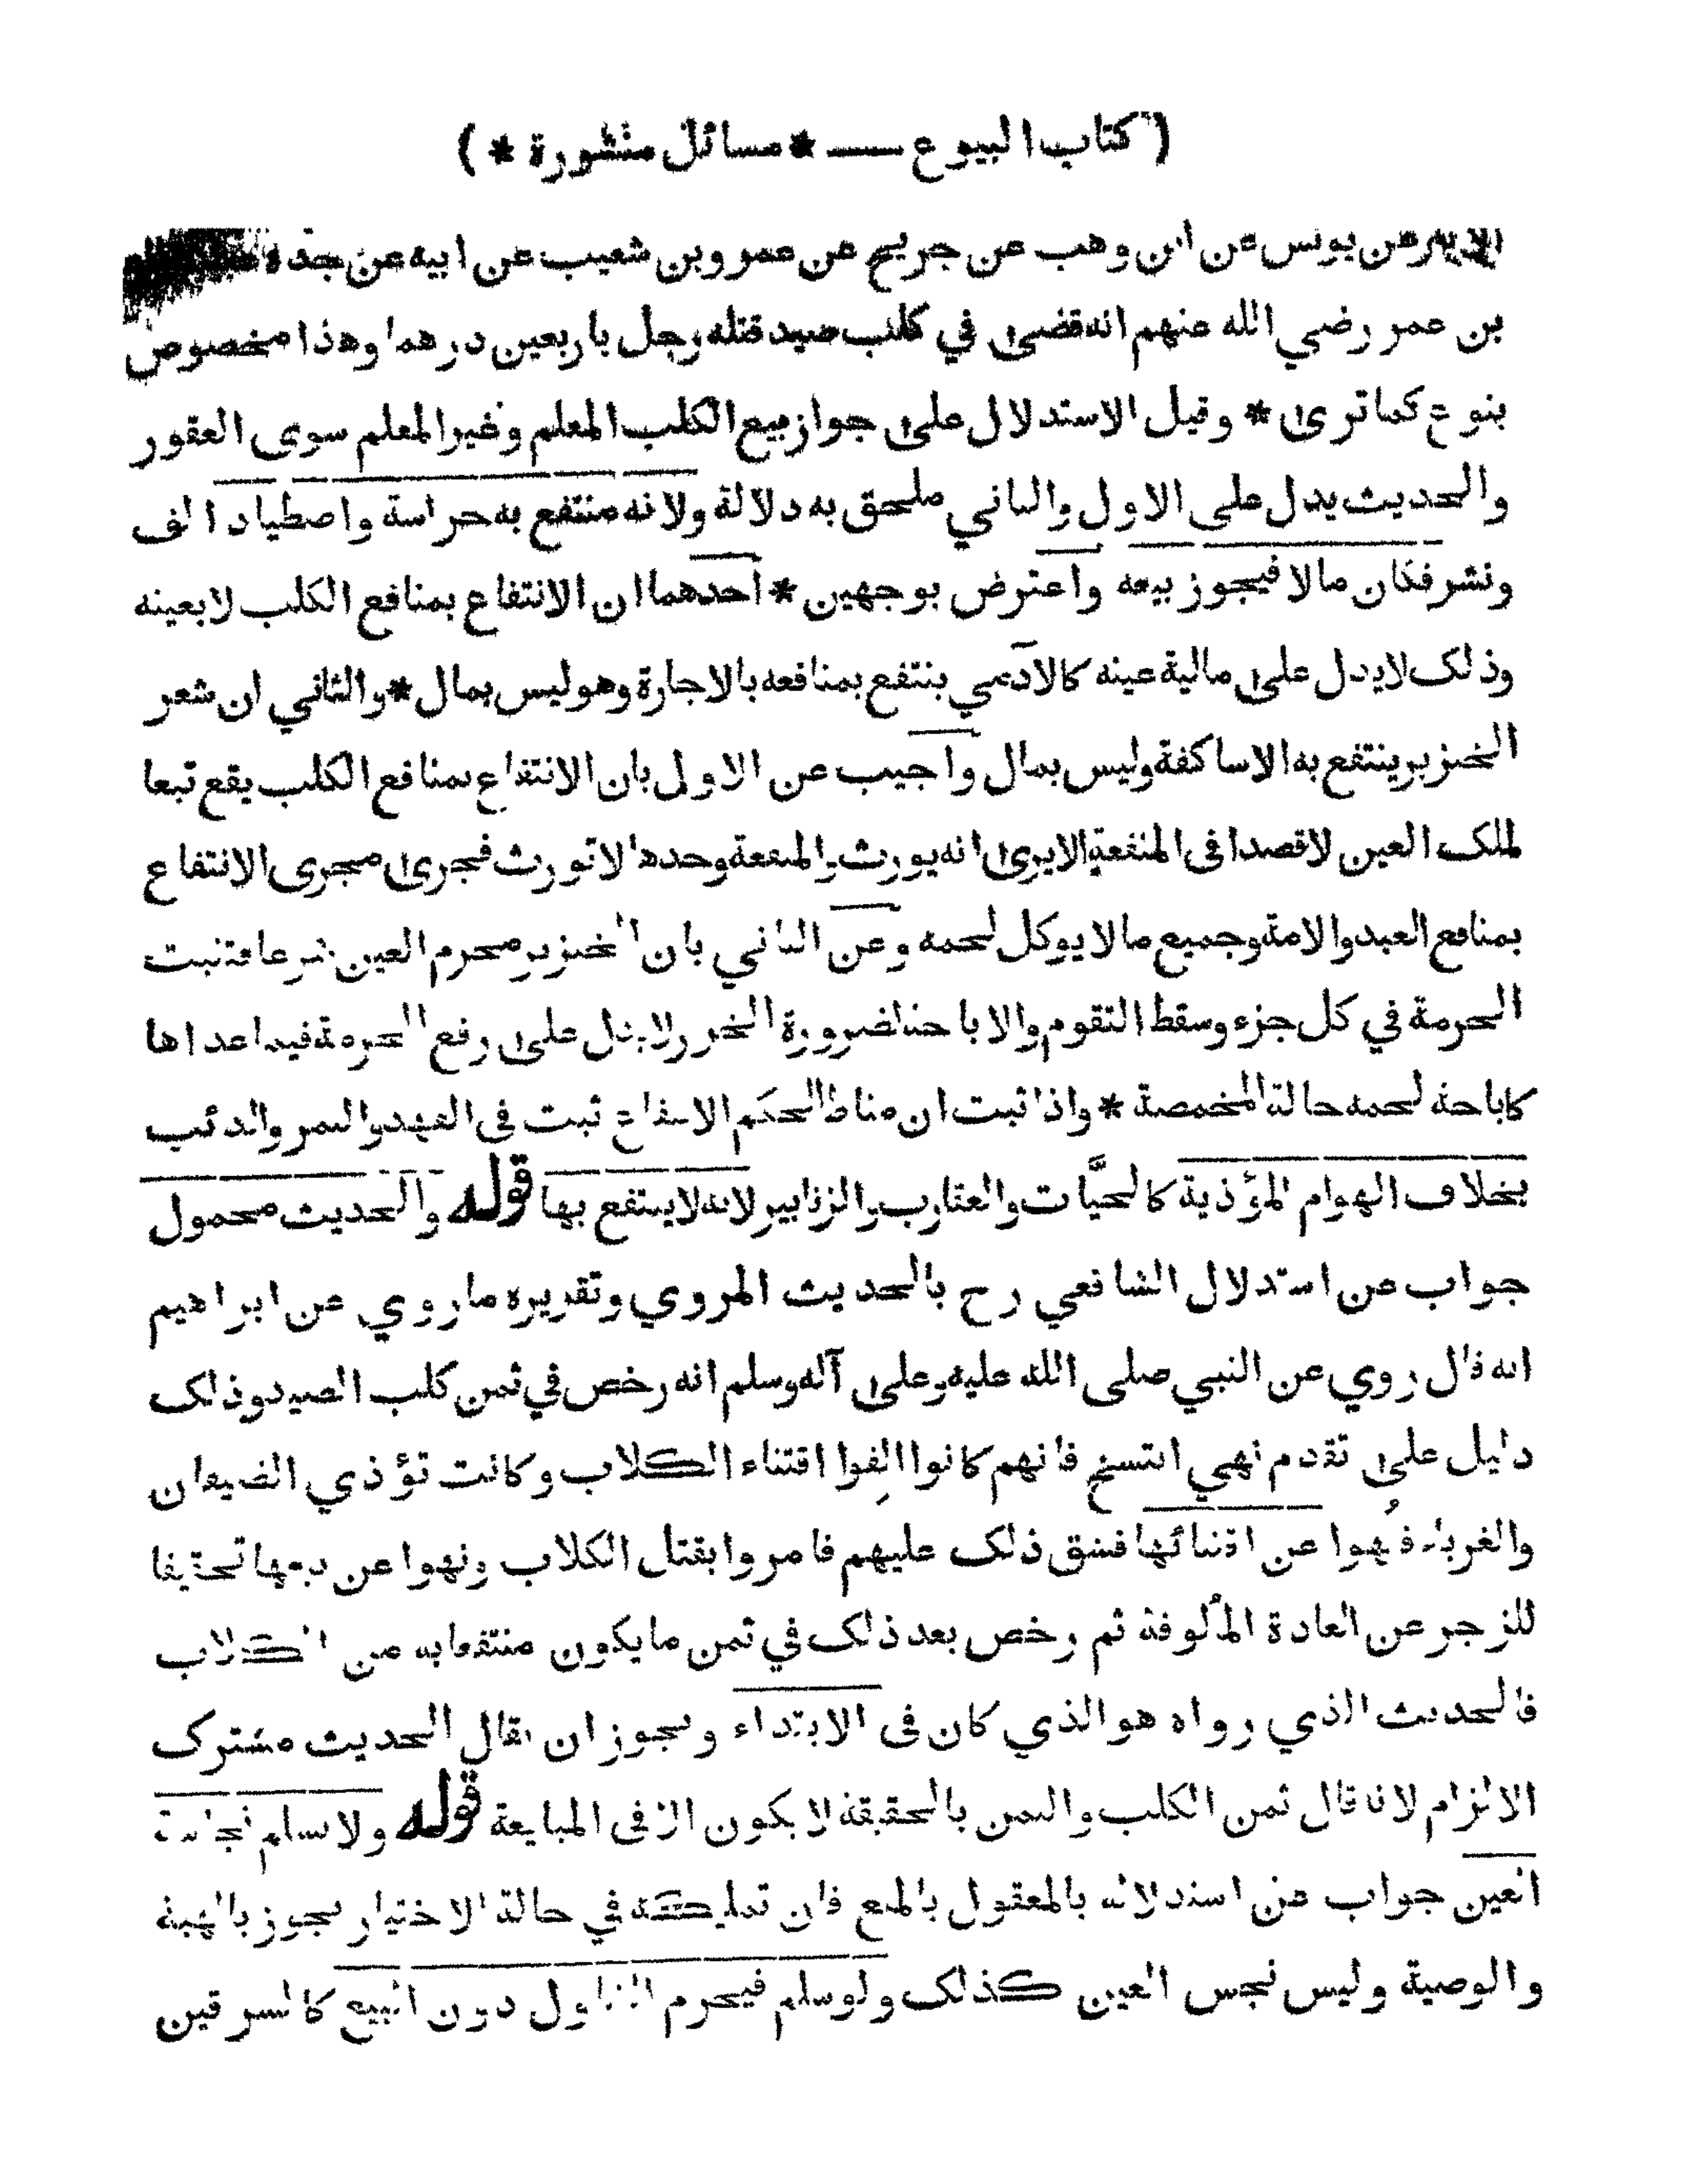 ( كتاب البيوع — * مسائل منثورة * )
عن يونس عن ابن وهب عن جريج عن عمرو بن شعيب عن ابيه عن جده
بن عمر رضي الله عنهم انه قضى في كلب صيد قتله رجل باربعين درهما وهذا مخصوص
بنوع كما ترى * وقيل الاستدلال على جواز بيع الكلب المعلم وغير المعلم سوى العقور
والحديث يدل على الاول والثاني ملحق به دلالة ولانه منتفع به حراسة واصطيادا لف
ونشر فكان مالا فيجوز بيعه واعترض بوجهين * احدهما ان الانتفاع بمنافع الكلب لا بعينه
وذلك لا يدل على مالية عينه كالآدمي ينتفع بمنافعه بالاجارة وهو ليس بمال * والثاني ان شعر
الخنزير ينتفع به الاساكفة وليس بمال واجيب عن الاول بان الانتفاع بمنافع الكلب يقع تبعا
لملك العين لا قصدا في المنفعة الا يرى انه يورث والمنفعة وحدها لا تورث فجرى مجرى الانتفاع
بمنافع العبد والامة وجميع ما لا يوكل لحمه وعن الثاني بان الخنزير محرم العين شرعا فتثبت
الحرمة في كل جزء وسقط التقوم والاباحة لضرورة الخرز لا يدل على رفع الحرمة فيما عداها
كاباحة لحمه حالة المخمصة * واذا ثبت ان مناط الحكم الانتفاع ثبت في الفهد والنمر والذئب
بخلاف الهوام المؤذية كالحيَّات والعقارب والزنابير لانه لا ينتفع بها قوله والحديث محمول
جواب عن استدلال الشافعي رح بالحديث المروي وتقريره ما روي عن ابراهيم
انه قال روي عن النبي صلى الله عليه وعلى آله وسلم انه رخص في ثمن كلب الصيد وذلك
دليل على تقدم نهي انتسخ فانهم كانوا الِفوا اقتناء الكلاب وكانت تؤذي الضيفان
والغرباء فنُهوا عن اقتنائها فشق ذلك عليهم فامروا بقتل الكلاب ونهوا عن بيعها تحقيقا
للزجر عن العادة المألوفة ثم رخص بعد ذلك في ثمن ما يكون منتفعا به من الكلاب
فالحديث الذي رواه هو الذي كان في الابتداء ويجوز ان يقال الحديث مشترك
الالزام لانه قال ثمن الكلب والثمن بالحقيقة لا يكون الا في المبايعة قوله ولا نسلم نجاسة
العين جواب عن استدلاله بالمعقول بالمنع فان تمليكه في حالة الاختيار يجوز بالهبة
والوصية وليس نجس العين كذلك ولو سلم فيحرم التناول دون البيع كالسرقين